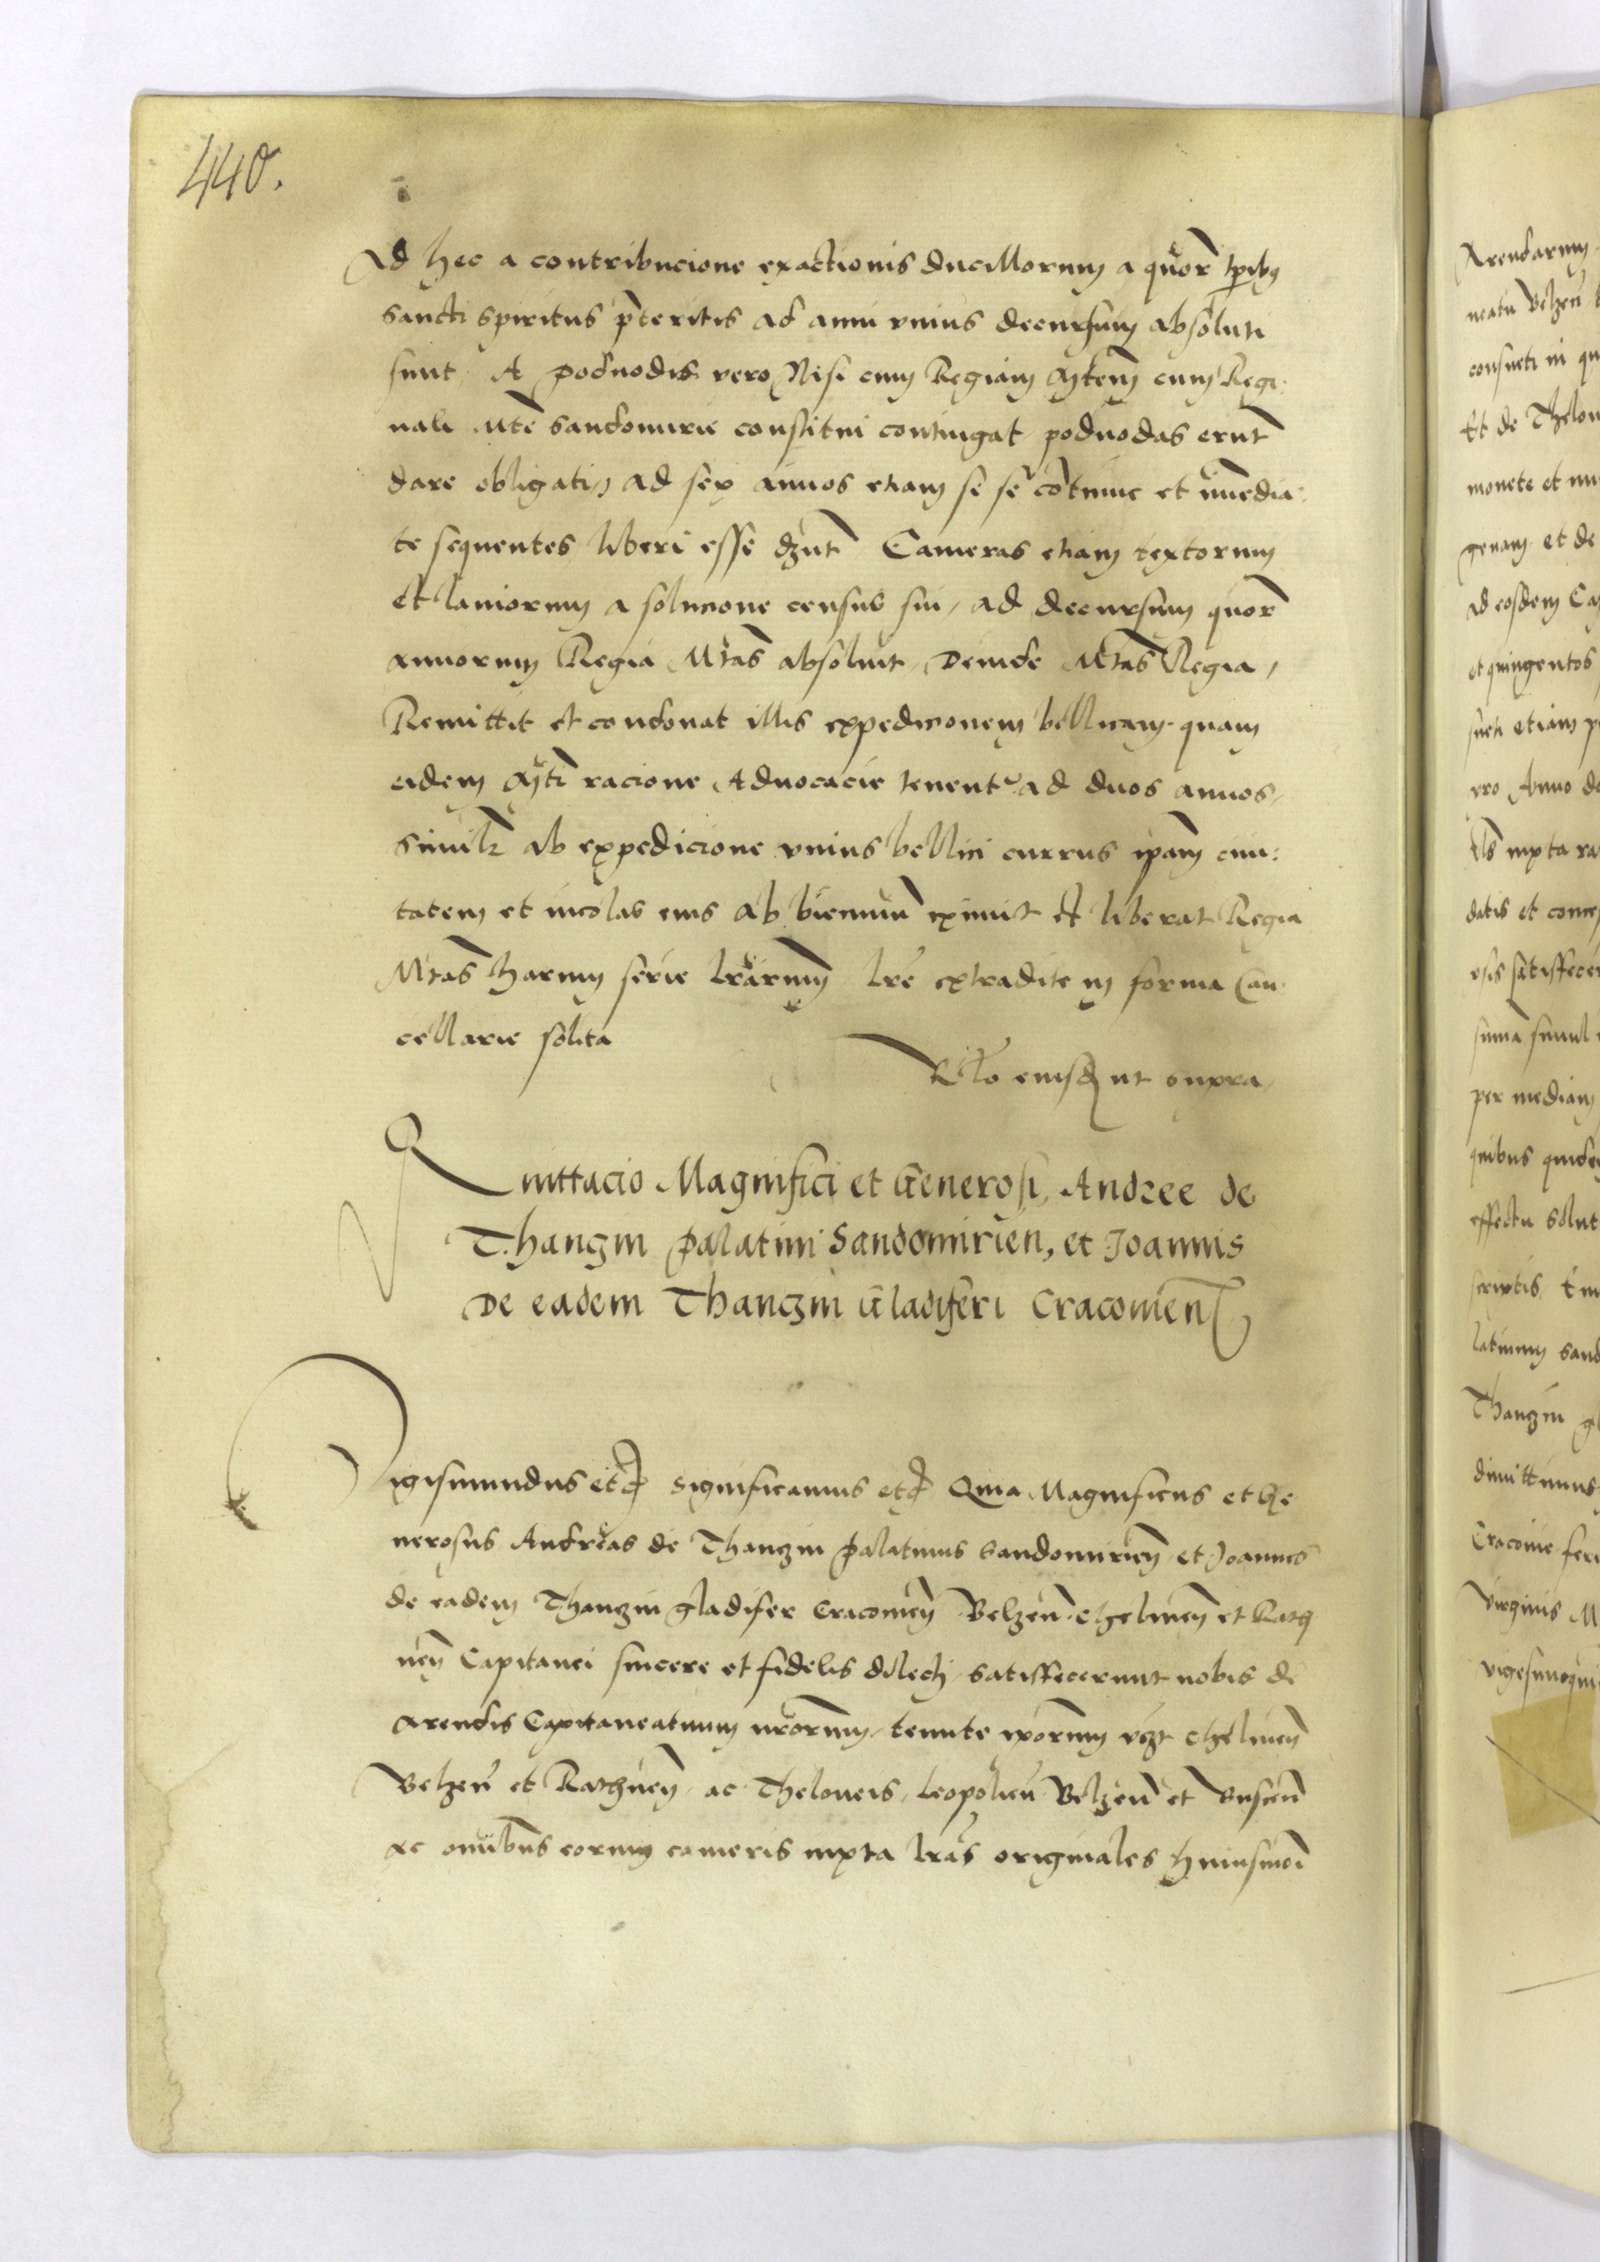 440.
Ad hec a contribucione exactionis ducillorum a quor tpibus
sancti spiritus preteritis ad anni unius decursum absoluti
sunt, A podvodis vero Nisi cum Regiam Mtem cum Regi¬
nali Mte Sandomirie constitui contingat podvodas erunt
dare obligati, ad sex annos etiam se se continue et immedia¬
te sequentes liberi esse dzunt Cameras etiam textorum
et laniorum a solucione census sui, ad decursum quor
annorum Regia Mtas absoluit, Deinde Mtas Regia,
Remittit et condonat illis expedicionem bellicam quam
eidem Mti racione Advocacie tenentur ad duos annos,
Similr ab expedicione unius bellici currus ipam civi¬
tatem et incolas eius ab biennium eximit et liberat Regia
Mtas harum serie lrarum lre extradite in forma Can¬
cellarie solita
eiusdem ut supra
Quittacio Magnifici et Generosi, Andree de
Thanczin Palatini Sandomirien, et Joannis
De eadem Thanczin Gladiferi Cracovien
Sigismundus etc Significamus etc Quia Magnificus et Ge
nerosus Andreas de Thanczin Palatinus Sandomirien et Joannes
de eadem Thanczin gladifer Cracovien Belzen Chelmen et Ratn
nen Capitanei sincere et fidelis dilecti, satisfecerunt nobis de
Arendis Capitaneatuum nrorum, tenute ipsorum vczt Chelmen
Belzen et Rathnen, ac Theloneis, Leopolien Belzen et Buscen
ac omnibus eorum cameris iuxta lras originales huiusmoi
Arendarum
neatu Belzen
consueti in
Et de Thelon
monete et
genam et de
ad eosdem
et quingentos
sueti etiam
vro Anno
iuxta
datis et
satisfecer
suma simul
per mediam
quibus
effectu solut
scriptis
latinum Sand
Thanczin
dimittimus
Cracovie feri
Virginis M
vigesimo